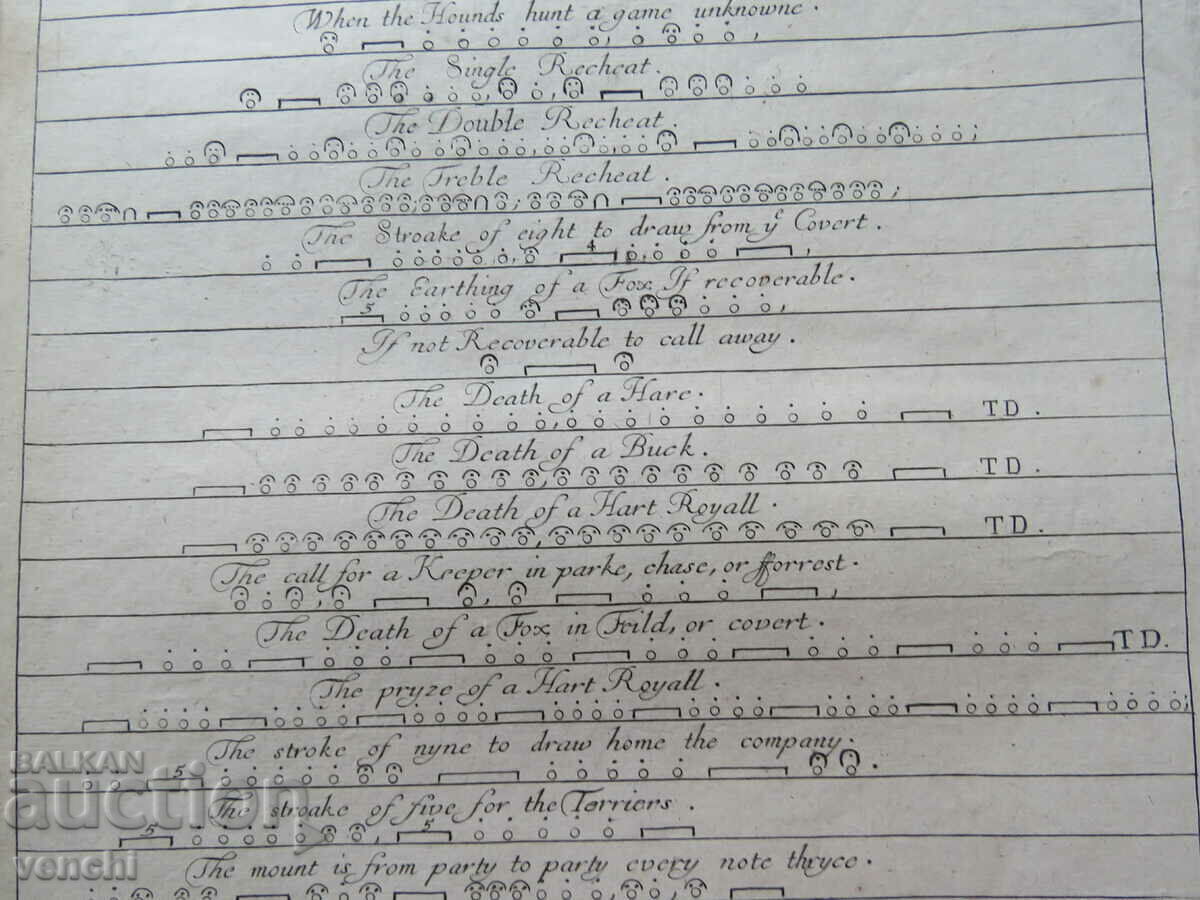 When the Hounds hunt a game unknowne.
The Single Recheat.
The Double Recheat.
The Treble Recheat.
The Stroake of eight to draw from yᵉ Covert.
4
The Earthing of a Fox If recoverable.
5
If not Recoverable to call away.
The Death of a Hare.
TD.
The Death of a Buck.
TD.
The Death of a Hart Royall.
TD.
The call for a Keeper in parke, chase, or fforrest.
The Death of a Fox in Feild, or covert.
TD.
The pryze of a Hart Royall.
The stroke of nyne to draw home the company.
5
The stroake of five for the Terriers.
5 5
The mount is from party to party every note thryce.
BALKAN
auction
venchi